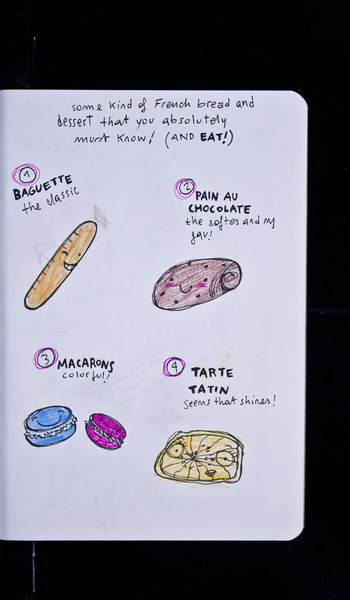 some kind of French bread and
dessert that you absolutely
must know! (AND EAT!)
1
BAGUETTE
the classic
2
PAIN AU
CHOCOLATE
the softes and my
fav!
3
MACARONS
colorful!
4
TARTE
TATIN
seems that shines!